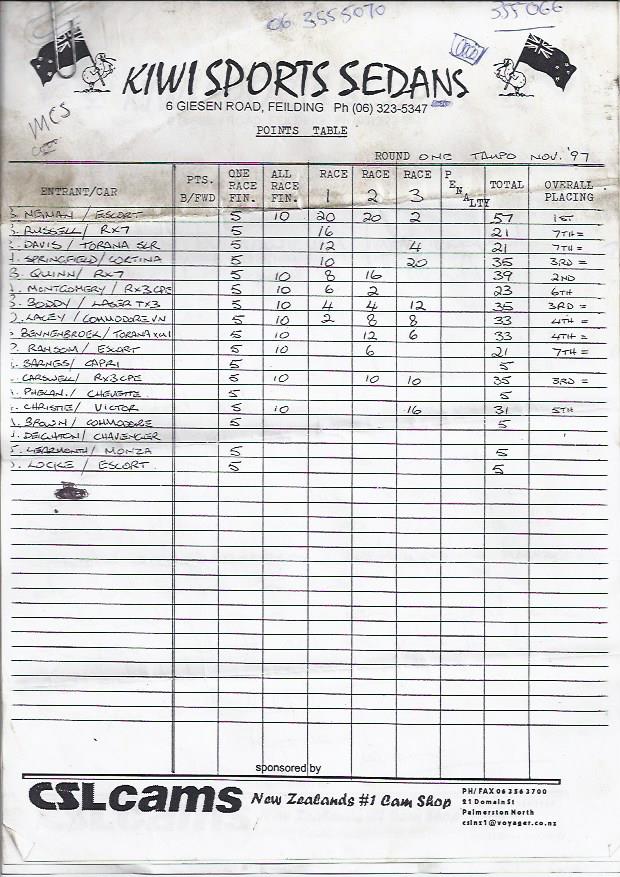 06 3555070
355066
KIWI SPORTS SEDANS
6 GIESEN ROAD, FEILDING Ph (06) 323-5347
MCS
POINTS TABLE
ROUND ONE TAUPO NOV. '97
ENTRANT/CAR PTS. B/FWD ONE RACE FIN. ALL RACE FIN. RACE 1 RACE 2 RACE 3 PENALTY TOTAL OVERALL PLACING
NEMAN / ESCORT 5 10 20 20 2 57 1ST
RUSSELL / RX7 5 16 21 7TH=
DAVIS / TORANA SLR 5 12 4 21 7TH=
SPRINGFIELD / CORTINA 5 10 20 35 3RD=
QUINN / RX7 5 10 8 16 39 2ND
MONTGOMERY / RX3CPE 5 10 6 2 23 6TH
BODDY / LASER TX3 5 10 4 4 12 35 3RD=
LACEY / COMMODORE VN 5 10 2 8 8 33 4TH=
BENNENBROEK / TORANA 5 10 12 6 33 4TH=
RANSOM / ESCORT 5 10 6 21 7TH=
BARNES / CAPRI 5 5
CARSWELL / RX3CPE 5 10 10 10 35 3RD=
PHELAN / CHEVETTE 5 5
CHRISTIE / VICTOR 5 10 16 31 5TH
BROWN / COMMODORE 5 5
DEIGHTON / CHAVENGER
LEARMONTH / MONZA 5 5
LOCKE / ESCORT 5 5
sponsored by
CSLcams New Zealands #1 Cam Shop
PH/FAX 06 356 3700
21 Domain St
Palmerston North
cslnz1@voyager.co.nz